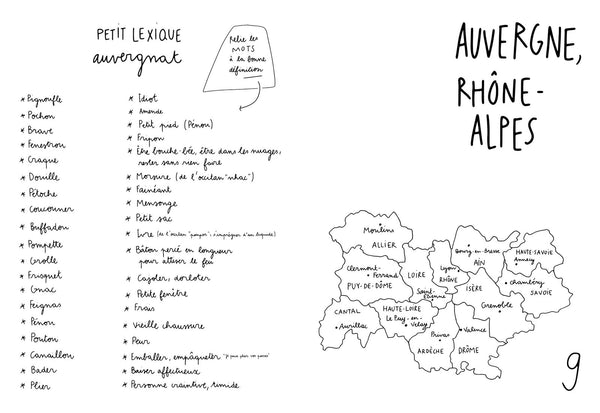 PETIT LEXIQUE
auvergnat
Relie les
MOTS
à la bonne
définition
* Pignoufle
* Pochon
* Brave
* Fenestron
* Craque
* Douille
* Pétoche
* Coucouner
* Buffadou
* Pompette
* Grolle
* Frisquet
* Gnac
* Feignas
* Pénou
* Poutou
* Canaillou
* Bader
* Plier
* Idiot
* Amende
* Petit pied (Pénou)
* Fripon
* Être bouche-bée, être dans les nuages,
rester sans rien faire
* Morsure (de l'occitan "nhac")
* Fainéant
* Mensonge
* Petit sac
* Ivre (de l'occitan
* Bâton percé en longueur
pour attiser le feu
* Cajoler, dorloter
* Petite fenêtre
* Frais
* Vieille chaussure
* Peur
* Emballer, empaqueter
* Baiser affectueux
* Personne craintive, timide
AUVERGNE,
RHÔNE-
ALPES
Moulins
ALLIER
Bourg-en-Bresse
AIN
HAUTE-SAVOIE
Annecy
Clermont-
Ferrand
PUY-DE-DÔME
LOIRE
Lyon
RHÔNE
Saint-
Etienne
ISÈRE
Chambéry
SAVOIE
Grenoble
CANTAL
Aurillac
HAUTE-LOIRE
Le Puy-en-
Velay
Privas
ARDÈCHE
Valence
DRÔME
9